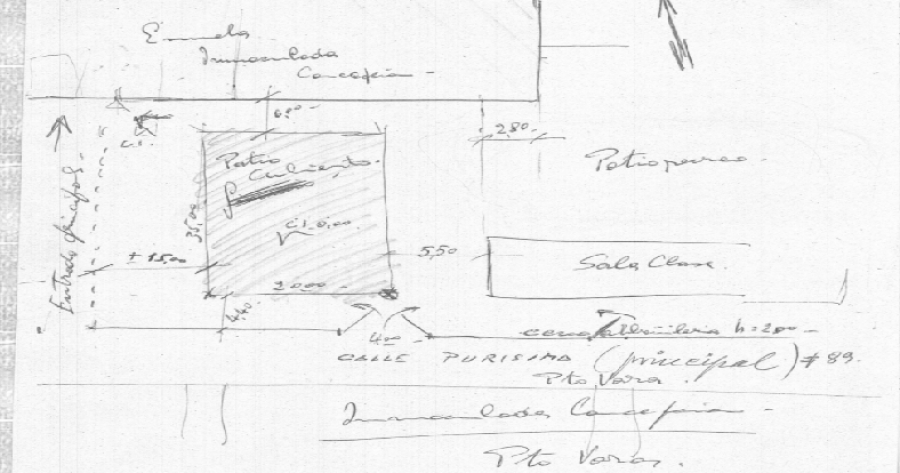 Escuela
Inmaculada
Concepción
6.80
2.80
Patio
Cubierto.
Patio pareo
Entrada principal
35.00
± 15.00
5.50
Sala Clase.
20.00
4.40
4.00
h = 2.00
CALLE PURISIMA (principal) # 89.
Pto Varas.
Inmaculada Concepción
Pto Varas.